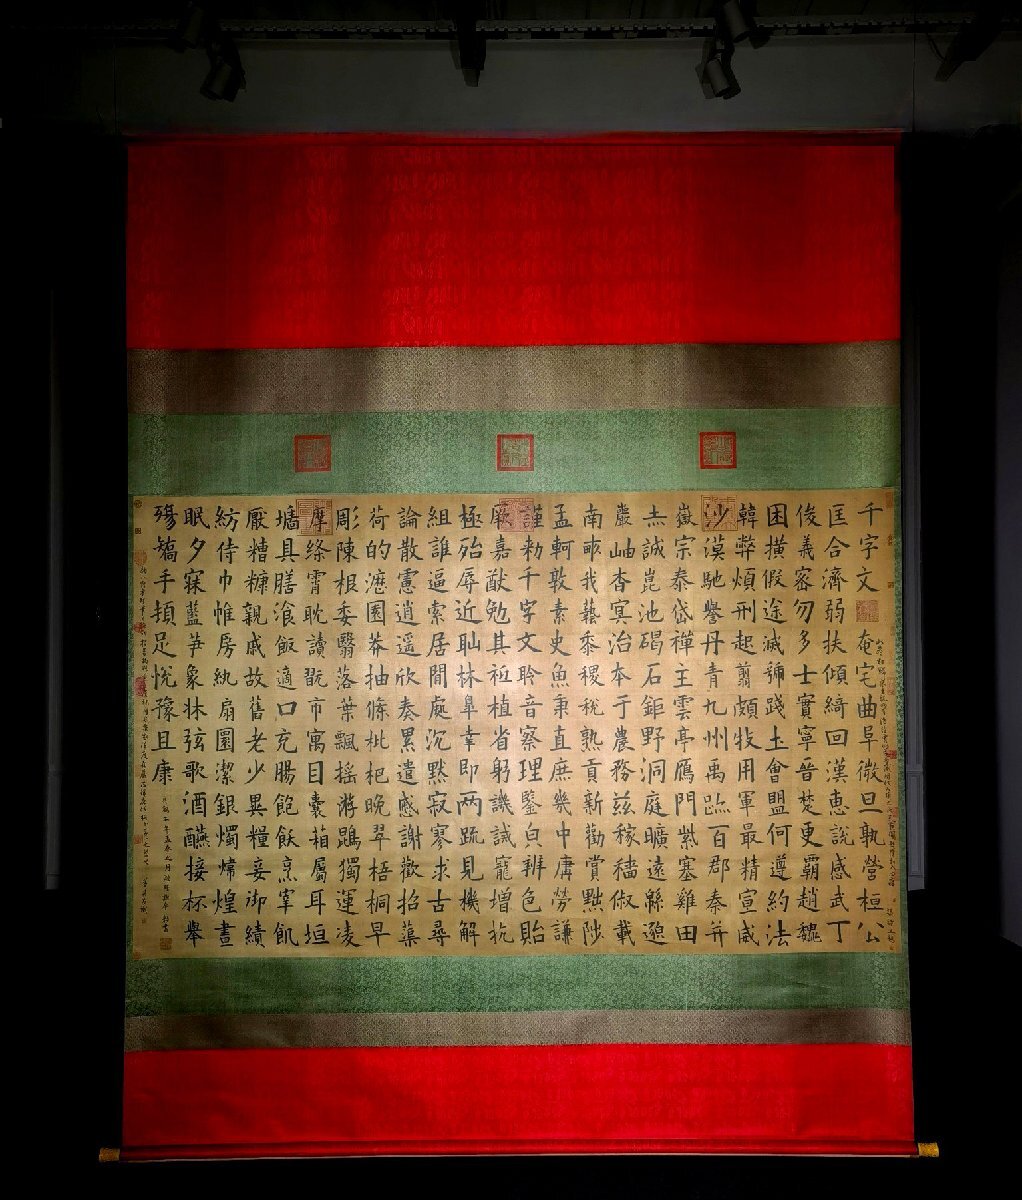 千字文 奄宅曲阜微旦孰營桓公
匡合濟弱扶傾綺回漢惠說感武丁
俊義密勿多士實寧晉楚更霸趙魏
困橫假途滅虢踐土會盟何遵約法
韓弊煩刑起翦頗牧用軍最精宣威
沙漠馳譽丹青九州禹跡百郡秦并
嶽宗泰岱禪主雲亭鴈門紫塞雞田
赤誠崑池碣石鉅野洞庭曠遠緜邈
巖岫杳冥治本于農務茲稼穡俶載
南畝我藝黍稷稅熟貢新勸賞黜陟
孟軻敦素史魚秉直庶幾中庸勞謙
謹勑千字文聆音察理鑒皃辨色貽
厥嘉猷勉其祗植省躬譏誡寵增抗
極殆辱近耻林皋幸即兩疏見機解
組誰逼索居閒處沉默寂寥求古尋
論散慮逍遙欣奏累遣慼謝歡招蕖
荷的瀝園莽抽條枇杷晚翠梧桐早
彫陳根委翳落葉飄搖游鵾獨運凌
摩絳霄耽讀翫市寓目囊箱屬耳垣
墻具膳飡飯適口充腸飽飫烹宰飢
厭糟糠親戚故舊老少異糧妾御績
紡侍巾帷房紈扇圓潔銀燭煒煌晝
眠夕寐藍笋象牀弦歌酒讌接杯舉
殤矯手頓足悅豫且康